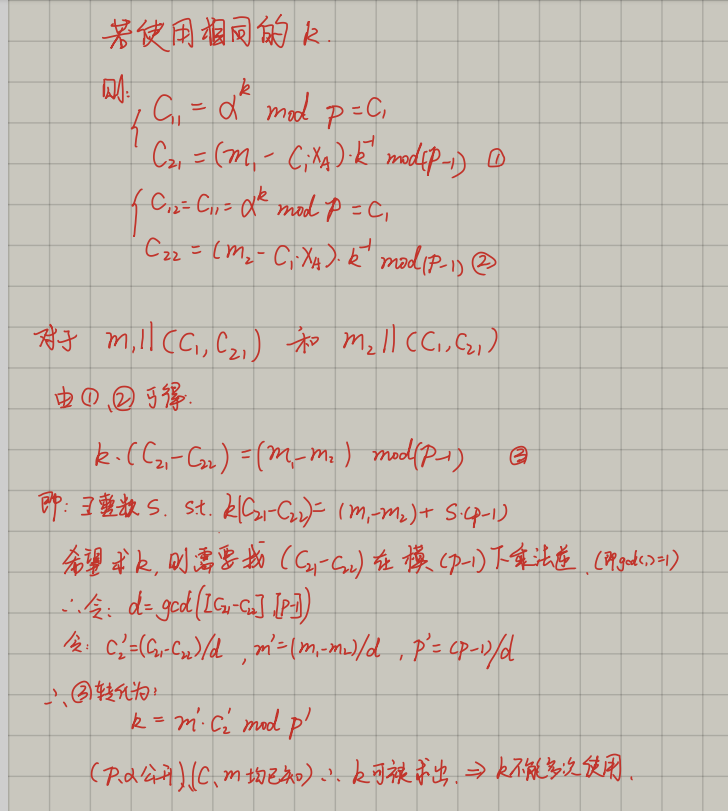 若使用相同的 k.
则:
C₁₁ = α^k mod p = C₁
C₂₁ = (m₁ - C₁·X_A)·k⁻¹ mod(p-1) ①
C₁₂ = C₁₁ = α^k mod p = C₁
C₂₂ = (m₂ - C₁·X_A)·k⁻¹ mod(p-1) ②
对于 m₁||(C₁,C₂₁) 和 m₂||(C₁,C₂₁)
由①、②可得.
k·(C₂₁-C₂₂) = (m₁-m₂) mod(p-1) ③
即: ∃整数 S. s.t. k(C₂₁-C₂₂) = (m₁-m₂) + S·(p-1)
希望求k, 则需要找 (C₂₁-C₂₂) 在模(p-1)下乘法逆. (即gcd(,)=1)
∴令: d = gcd([C₂₁-C₂₂],[p-1])
令: C₂' = (C₂₁-C₂₂)/d , m' = (m₁-m₂)/d , p' = (p-1)/d
∴ ③转化为:
k = m'·C₂' mod p'
(p、α公开)、(C、m均已知) ∴ k可被求出. ⇒ k不能多次使用.